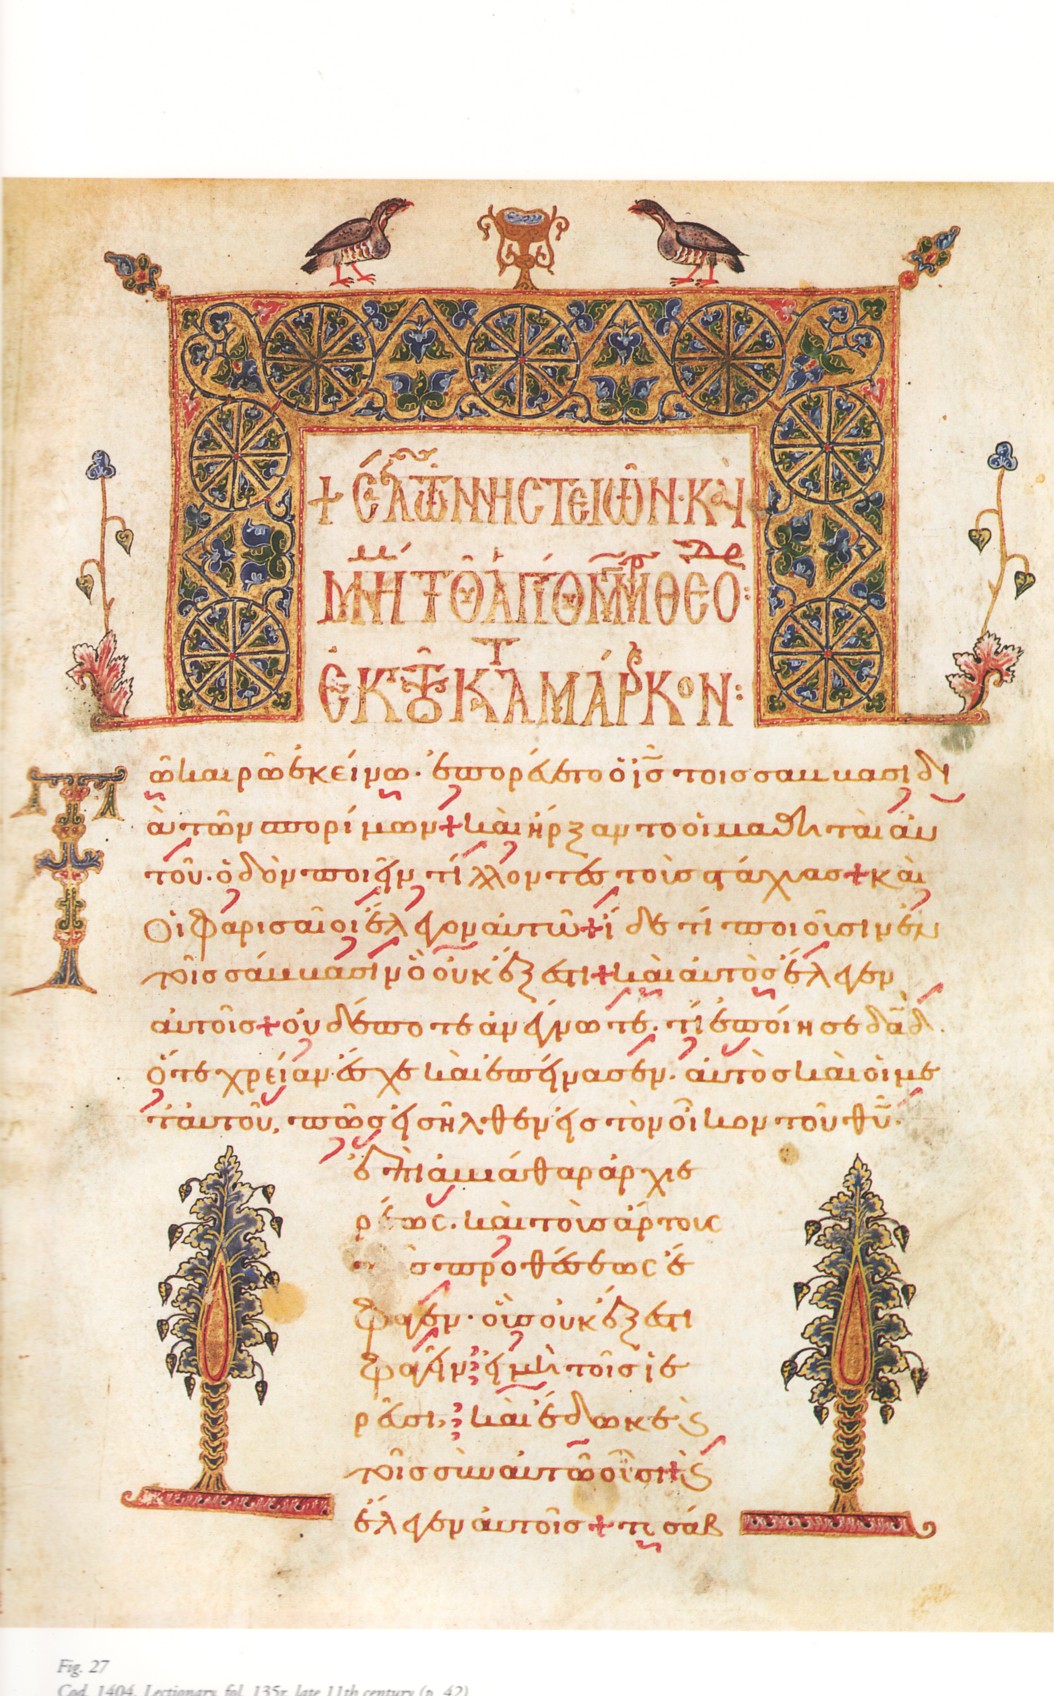 νηστειῶν· καὶ
ἐκ τοῦ κατ Μάρκον:
Τῶ καιρῶ ἐκείνω· ἐπορεύετο ὁ ις τοῖς σάββασι δι
ὰ τῶν σπορίμων + καὶ ἤρξαντο οἱ μαθηταὶ αὐ
τοῦ· ὁδὸν ποιεῖν τίλλοντες τοὺς στάχυας + καὶ
Οἱ φαρισαῖοι ἔλεγον αὐτῶ + ἴδε τί ποιοῦσιν ἐν
τοῖς σάββασιν ὃ οὐκ ἔξεστι + καὶ αὐτὸς ἔλεγεν
αὐτοῖς + οὐδέποτε ἀνέγνωτε· τί ἐποίησε δαδ·
ὅτε χρείαν ἔσχε καὶ ἐπείνασεν· αὐτὸς καὶ οἱ με
τ' αὐτοῦ, πῶς εἰσῆλθεν εἰς τὸν οἶκον τοῦ θυ·
ἐπὶ ἀβιάθαρ ἀρχιε
ρέως· καὶ τοὺς ἄρτους
προθέσεως ἔ
φαγεν· οὓς οὐκ ἔξεστι
φαγεῖν· εἰ μὴ τοῖς ἱε
ρεῦσι· καὶ ἔδωκε ϗ
τοῖς σὺν αὐτῶ οὖσι + ϗ
ἔλεγεν αὐτοῖς + τὸ σάβ
Fig. 27
Cod. 1404, Lectionary, fol. 135r, late 11th century (p. 42)